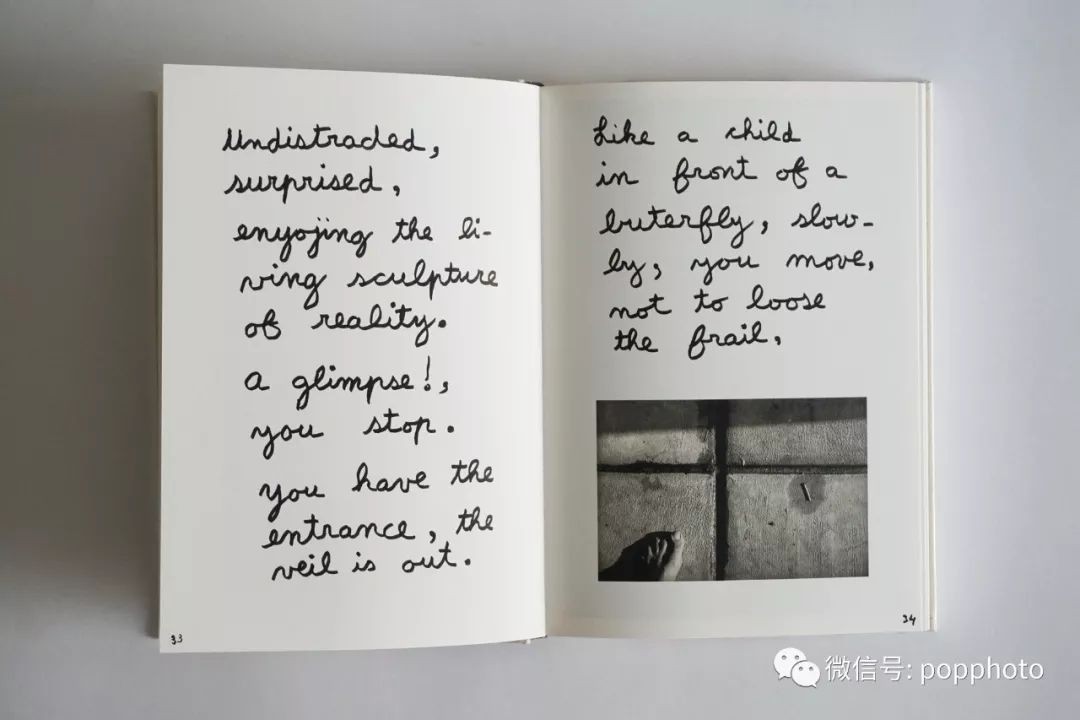 Undistracted,
surprised,
enyojing the li-
ving sculpture
of reality.
a glimpse!,
you stop.
you have the
entrance, the
veil is out.
33
Like a child
in front of a
buterfly, slow-
ly, you move,
not to loose
the frail,
34
微信号: popphoto